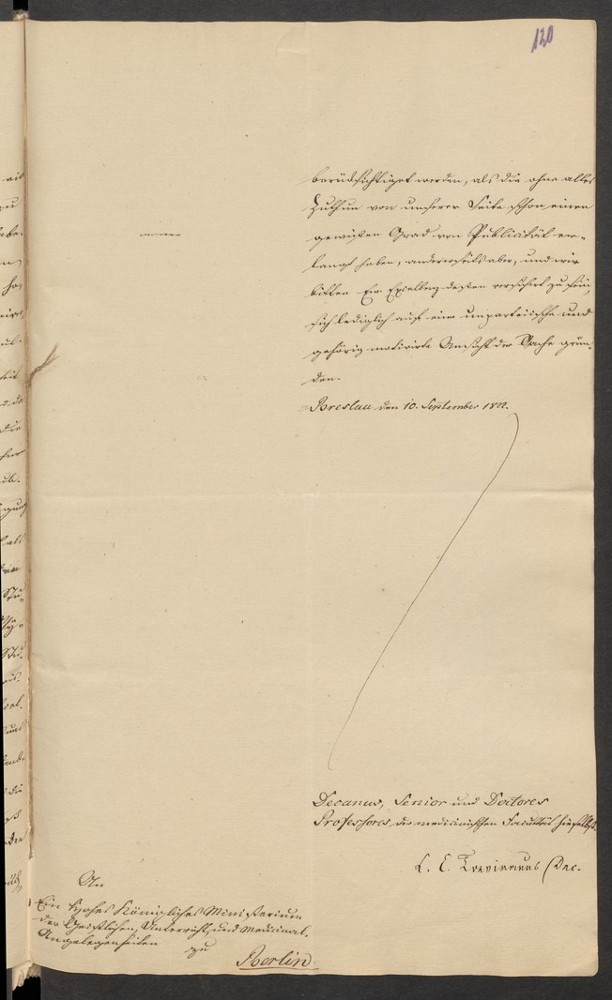 120
berücksichtiget werden, als die ohne alles
Zuthun von unserer Seite schon einen
gewissen Grad von Publicität er-
langt haben, andererseits aber, und wir
bitten Ew. Excellenz dessen versichert zu sein,
sich lediglich auf eine unparteiische und
gehörig motivirte Ansicht der Sache grün-
den.
Breslau den 10. September
Decanus, Senior und Doctores
Professores der medicinischen Facultät hieselbst.
L. C. Treviranus Dec.
An
Ein Hohes Königliches Ministerium
der Geistlichen, Unterrichts, und Medicinal-
Angelegenheiten
zu
Berlin.